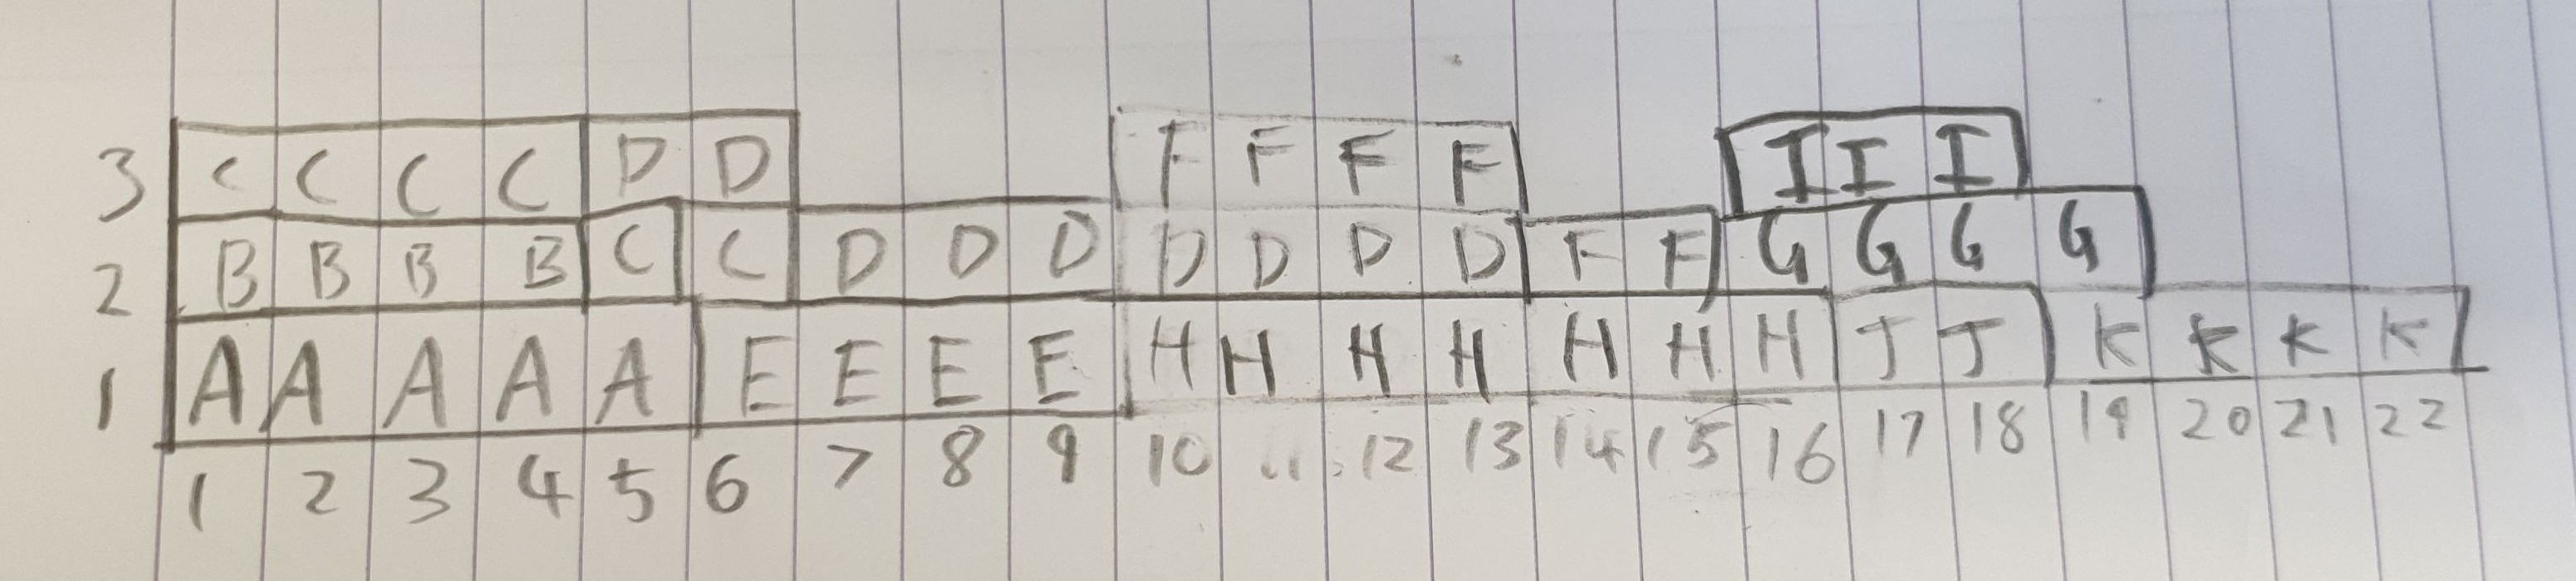 3 C C C C D D F F F F I I I
2 B B B B C C D D D D D D D F F G G G G
1 A A A A A E E E E H H H H H H H J J K K K K
1 2 3 4 5 6 7 8 9 10 11 12 13 14 15 16 17 18 19 20 21 22